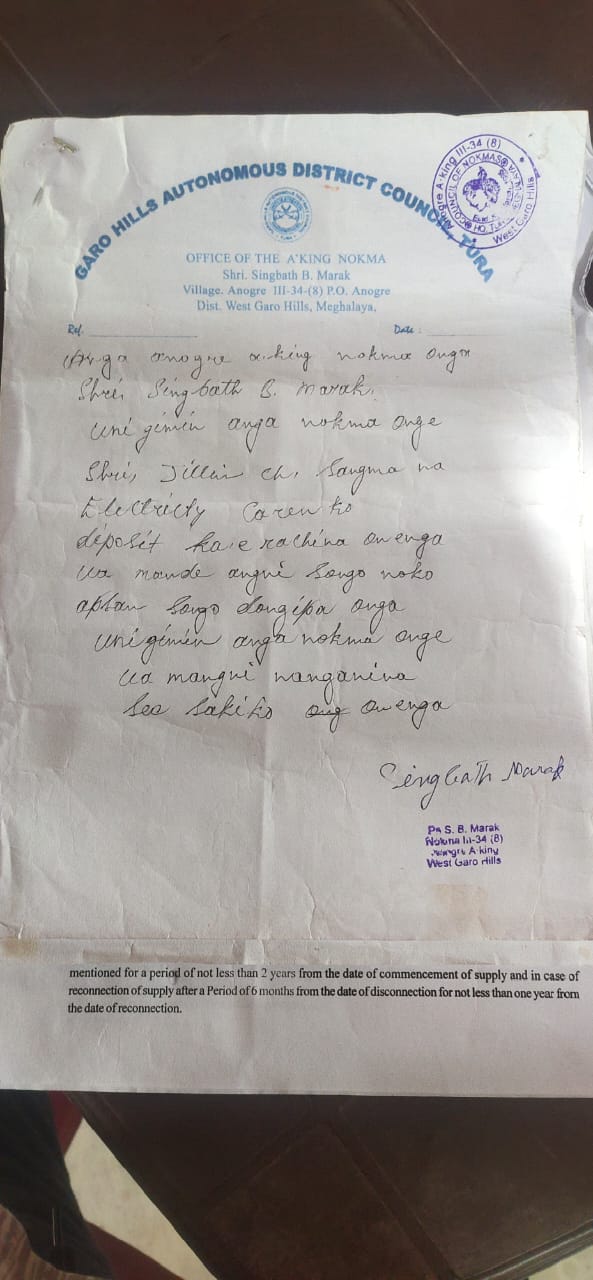 GARO HILLS AUTONOMOUS DISTRICT COUNCIL, TURA
Anogre A·king III-34 (8)
COUNCIL OF NOKMAS
West Garo Hills
OFFICE OF THE A'KING NOKMA
Shri. Singbath B. Marak
Village. Anogre III-34-(8) P.O. Anogre
Dist. West Garo Hills, Meghalaya,
Ref.
Date :
anga anogre a·king nokma onga
Shri, Singbath B. Marak.
Uni gimin anga nokma onge
Shri, Jillin Ch. Sangma na
Electricty Caren ko
deposit ka·e rachina on enga
Ua mande angni Songo noko
aptan Songo dongipa onga
Uni gimin anga nokma onge
Ua mangni nanganina
Sea Sakiko on enga
Singbath Marak
S. B. Marak
III-34 (8)
A·king
West Garo Hills
mentioned for a period of not less than 2 years from the date of commencement of supply and in case of
reconnection of supply after a Period of 6 months from the date of disconnection for not less than one year from
the date of reconnection.